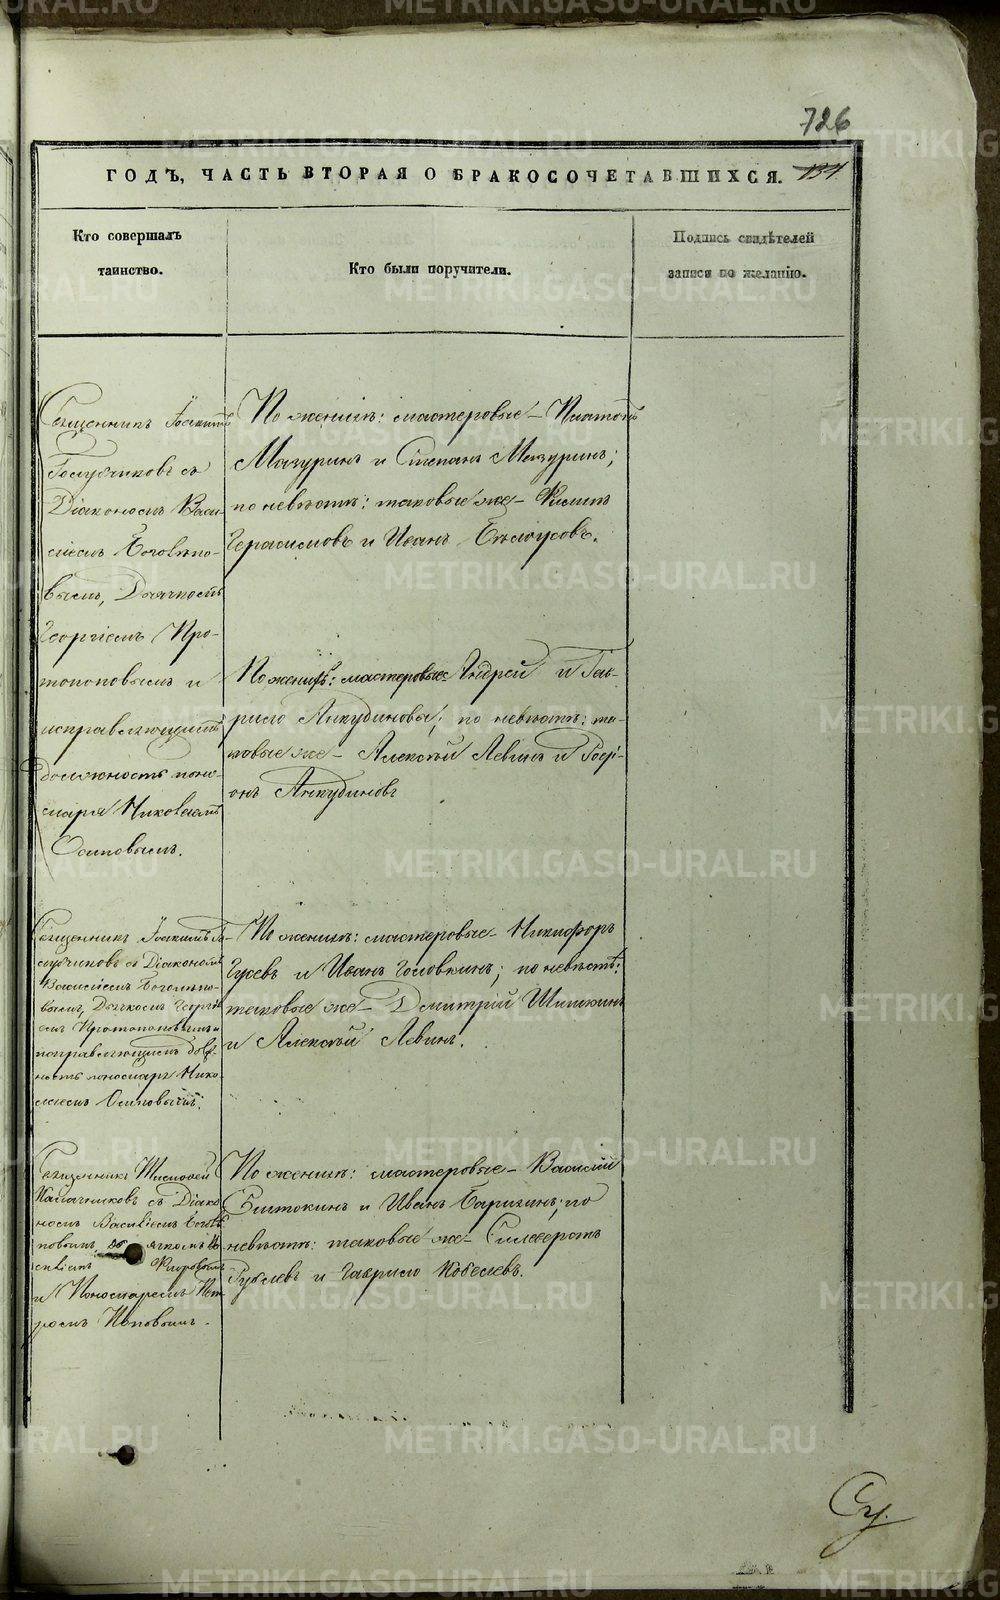 726
ГОДЪ, ЧАСТЬ ВТОРАЯ О БРАКОСОЧЕТАВШИХСЯ. 131.
Кто совершалъ
таинство.
Кто были поручители.
Подпись свидѣтелей
записи по желанію.
Священникъ Іоакимъ
Голубчиковъ съ
Діакономъ Васи-
ліемъ Боголѣпо-
вымъ, Дьячкомъ
Георгіемъ Про-
топоповымъ и
исправляющимъ
должность поно-
маря Николаемъ
Осиповымъ.
По женихѣ: мастеровые – Платонъ
Мазуринъ и Степанъ Мазуринъ;
по невѣстѣ: таковые же – Филипъ
Герасимовъ и Иванъ Бѣлоусовъ.
По женихѣ: мастеровые Андрей и Гав-
рило Анкудиновы; по невѣстѣ: та-
ковые же – Алексѣй Левинъ и Родi-
онъ Анкудиновъ
Священникъ Іоакимъ Го-
лубчиковъ съ Діакономъ
Василіемъ Боголѣпо-
вымъ, Дьячкомъ Георгі-
емъ Протопоповымъ и
исправляющимъ долж-
ность пономаря Нико-
лаемъ Осиповымъ.
По женихѣ: мастеровые – Никифоръ
Гусевъ и Иванъ Головкинъ; по невѣстѣ:
таковые же – Дмитрій Шишкинъ
и Алексѣй Левинъ.
Священникъ Тимофей
Калачниковъ съ Діако-
номъ Василіемъ Боголѣ-
повымъ,
Флоровымъ
и Пономаремъ Пет-
ромъ Поповымъ.
По женихѣ: мастеровые – Василій
и Иванъ Барышинъ; по
невѣстѣ: таковые же – Силиверстъ
Рублевъ и Гаврило Кобелевъ.
METRIKI.GASO-URAL.RU